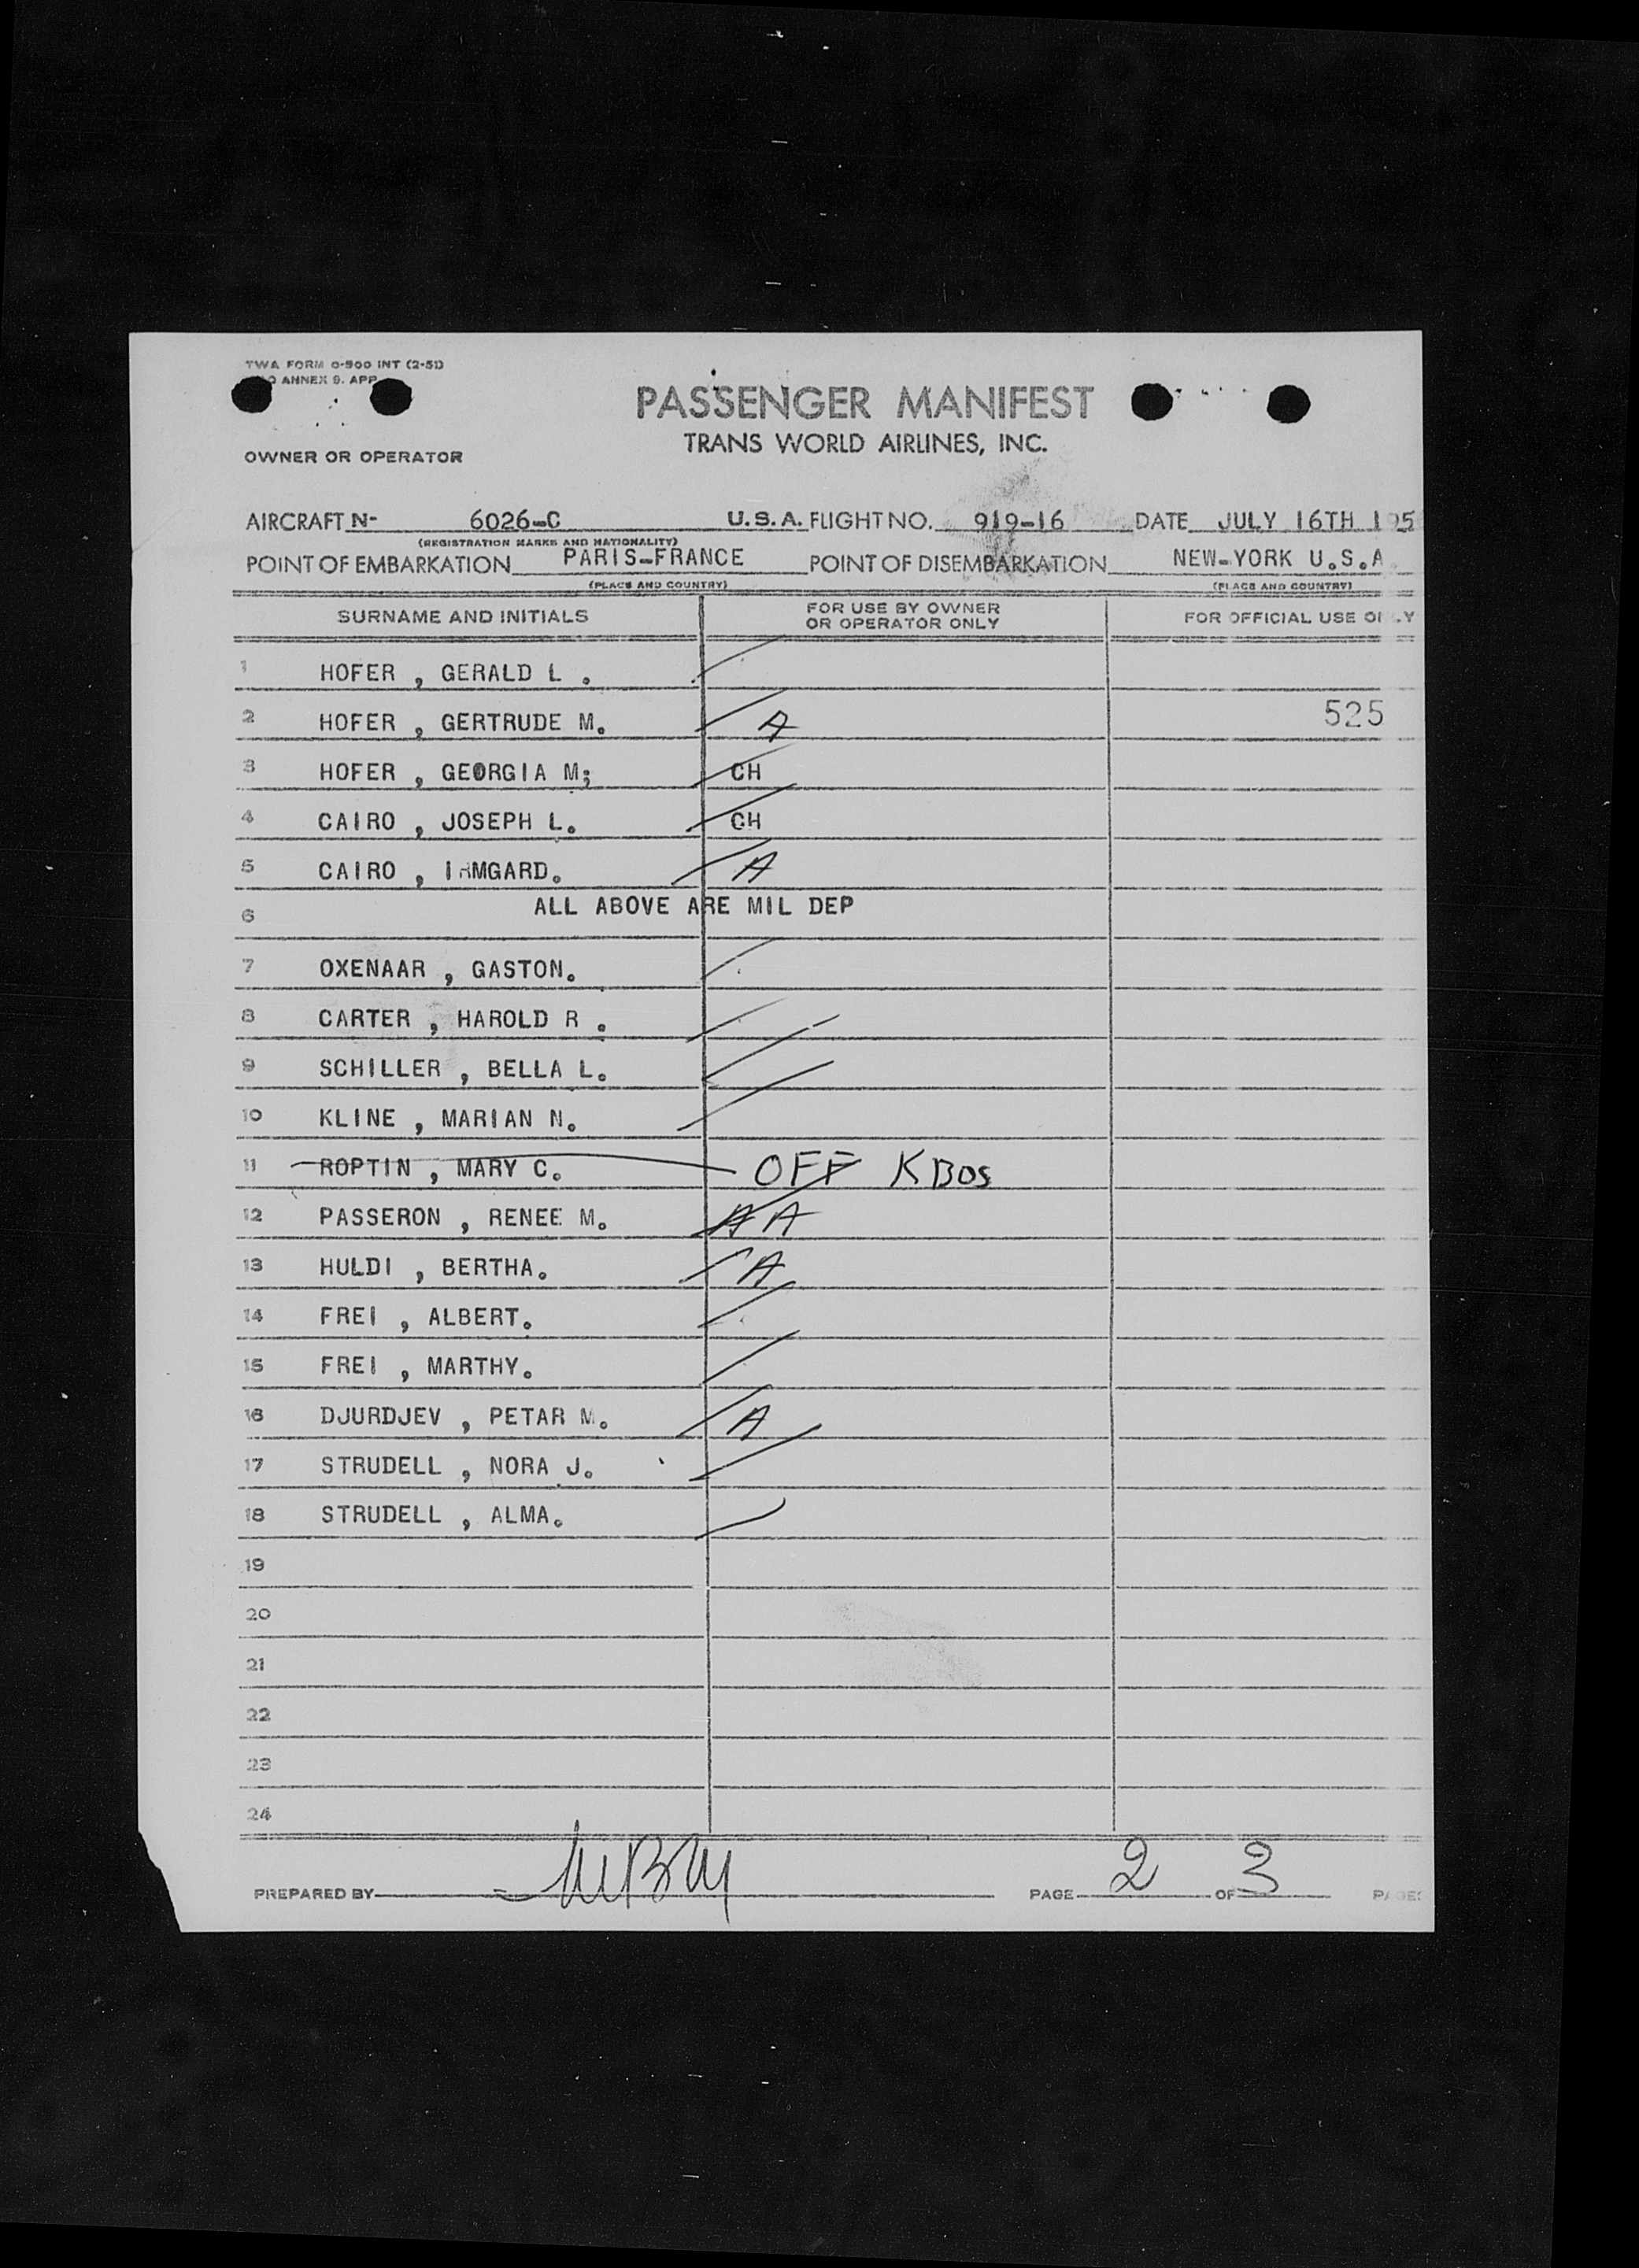 TWA FORM 0-900 INT (2-51)
ANNEX 9. APP
PASSENGER MANIFEST
TRANS WORLD AIRLINES, INC.
OWNER OR OPERATOR
AIRCRAFT N- 6026-C U.S.A. FLIGHT NO. 919-16 DATE JULY 16TH 195
(REGISTRATION MARKS AND NATIONALITY)
POINT OF EMBARKATION PARIS-FRANCE POINT OF DISEMBARKATION NEW-YORK U.S.A.
(PLACE AND COUNTRY) (PLACE AND COUNTRY)
SURNAME AND INITIALS FOR USE BY OWNER OR OPERATOR ONLY FOR OFFICIAL USE ONLY
1 HOFER , GERALD L .
2 HOFER , GERTRUDE M. A 525
3 HOFER , GEORGIA M; CH
4 CAIRO , JOSEPH L. CH
5 CAIRO , IRMGARD. A
6 ALL ABOVE ARE MIL DEP
7 OXENAAR , GASTON.
8 CARTER , HAROLD R .
9 SCHILLER , BELLA L.
10 KLINE , MARIAN N.
11 ROPTIN , MARY C. OFF KBOS
12 PASSERON , RENEE M. A A
13 HULDI , BERTHA. A
14 FREI , ALBERT.
15 FREI , MARTHY.
16 DJURDJEV , PETAR M. A
17 STRUDELL , NORA J.
18 STRUDELL , ALMA.
19
20
21
22
23
24
PREPARED BY PAGE 2 OF 3 PAGES